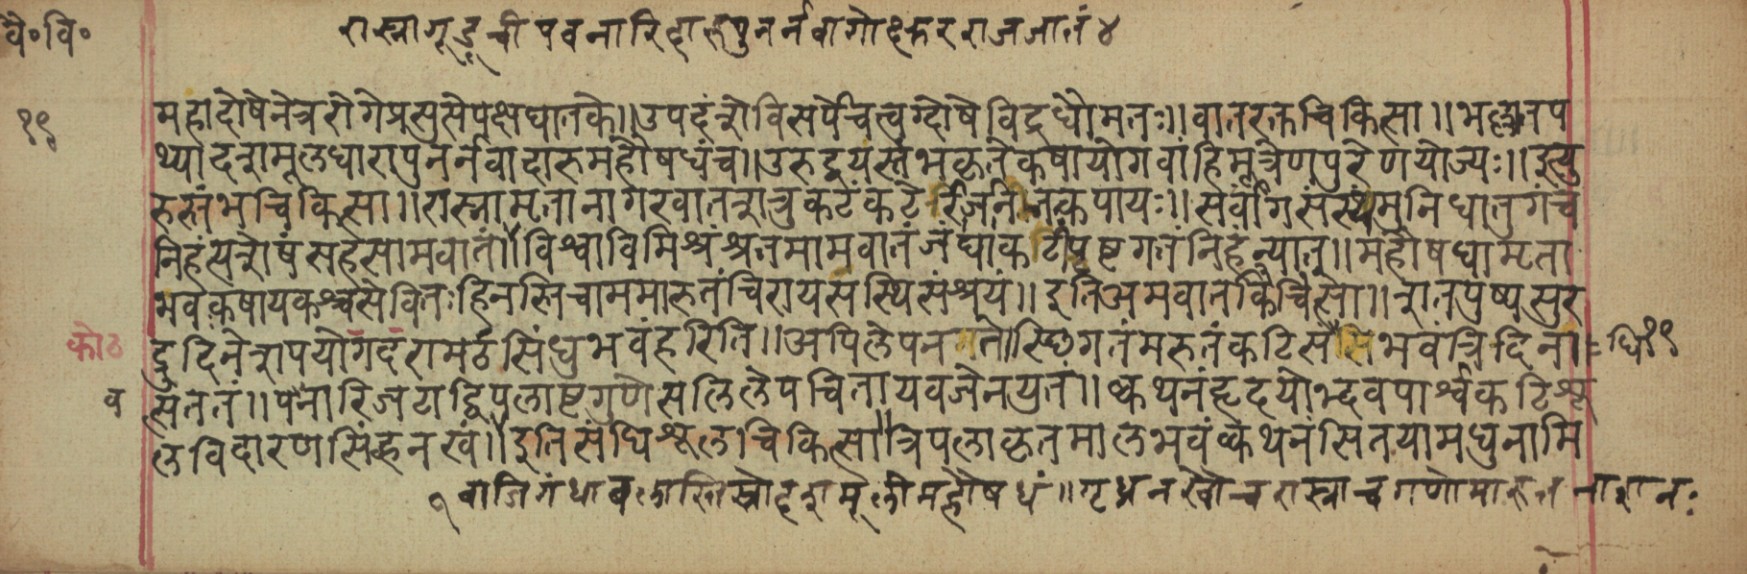 वै॰वि॰
रास्नागूडुची पवनारि दारुपुनर्नवागोक्षुरराजजातं ४
१९
महादोषेनेत्ररोगेप्रसुप्तेपक्षघातके॥उपदंशेविसर्पेचत्वग्दोषेविद्रधौमतः॥वातरक्तचिकित्सा॥भल्लातप
थ्यादशमूलधारापुनर्नवादारुमहौषधंच॥उरुद्वयस्तंभकृतेकषायोगवांहिमूत्रेणपुरेणयोज्यः॥इत्यु
रुस्तंभचिकित्सा॥रास्नामृतानागरवातशत्रुकटंकटेरीजनितकषायः॥सर्वांगसंस्थंमुनिधातुगंच
निहंत्यशेषंसहसामवातं॥विश्वाविमिश्रंश्रुतमामवातंजंघांकटीपृष्टगतंनिहंन्यात्॥महौषधामृता
भवकषायकश्चसेवितःहिनस्तिचाममारुतंचिरायसंस्थिसंश्रयं॥इतिअमवातकिचित्सा॥शतपुष्पसुर
द्रुदिनेशपयोगदरामठसिंधुभवंहरिति॥अपिलेपन स्थिगतंमरुतंकटिसंधिभवंत्रिदिनं
कोठ
धि१९
व
सततं॥पवनारिजटाद्विपलाष्टगणेसलिलेपचितायवजेनयुतं॥क्वथनंहृदयोद्भवपार्श्वकटिशू
लविदारणसिंहनखं॥इतिसंधिशूलचिकित्सा॥त्रिपलाकृतमालभवंक्वथनंसितयामधुनामि
१ वाजिगंधाबलास्तिस्रोदशमूलीमहौषधं॥गृध्रनख्यौचरास्नाचगणोमारुतनाशनः